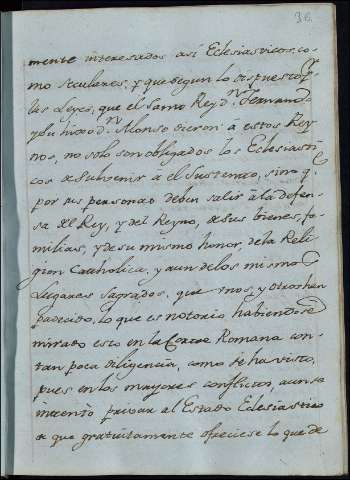 36.
mente interesados así Eclesiasticos, co-
mo seculares, y que segun lo dispuesto pr
las Leyes, que el Santo Rey dn. Fernando
y su hijo dn. Alonso dieron à estos Rey-
nos, no solo son obligados los Eclesiasti-
cos à subvenir à el Sustento, sino q.
por sus personas deben salir à la defen-
sa del Rey, y del Reyno, de sus bienes, fa-
milias, y de su mismo honor, de la Reli-
gion Catholica, y aun de los mismos
Lugares Sagrados, que unos, y otros han
padecido, lo que es notorio habiendose
mirado esto en la Corte Romana con
tan poca diligencia, como se ha visto,
pues en los mayores conflictos, aun se
intentò privar al Estado Eclesiastico
de que gratuitamente ofreciese lo que de